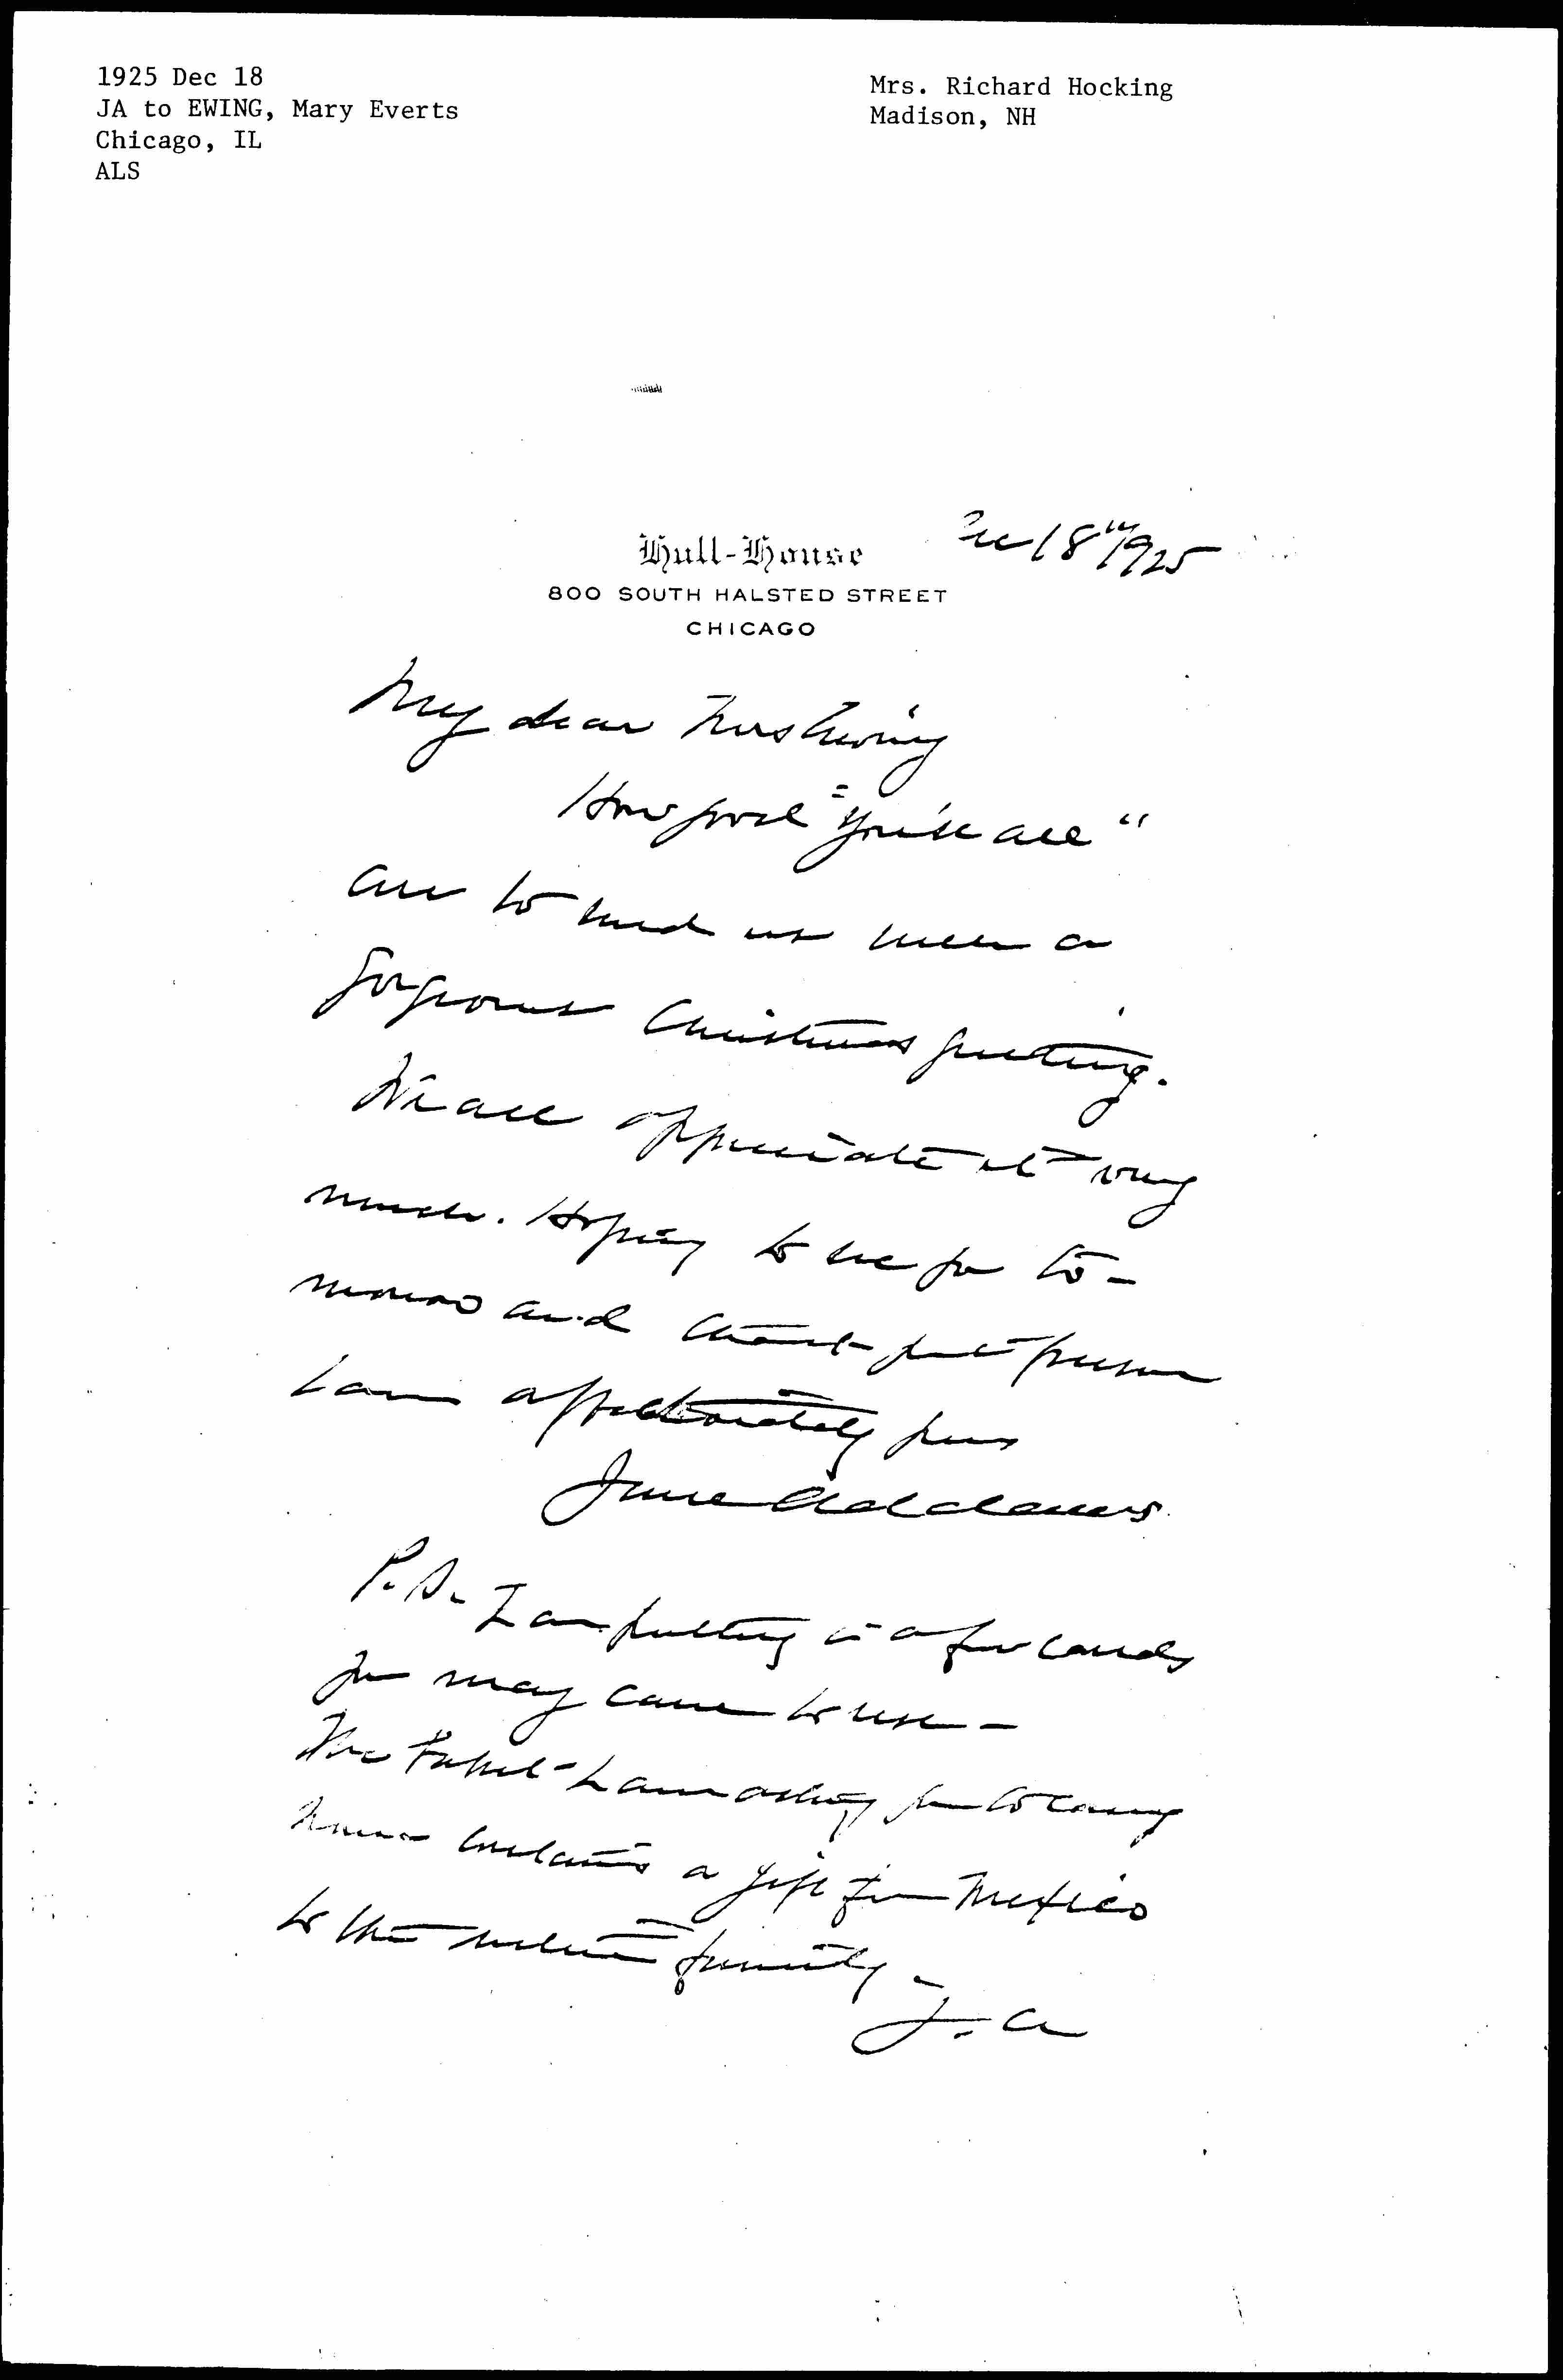 1925 Dec 18
JA to EWING, Mary Everts
Chicago, IL
ALS
Mrs. Richard Hocking
Madison, NH
Hull-House
Dec 18" 1925
800 SOUTH HALSTED STREET
CHICAGO
My dear Mrs Ewing
How good "you'se all"
are to send us such a
gorgeous Christmas greeting.
We all appreciate it very
much. Hoping to see you to-
morrow and thank you in person
I am affectionately yours
Jane Addams.
P.S. I am putting in a few cards
you may care to use -
The I am asking you to carry
home contains a gift from Mexico
to the entire family -
J. A